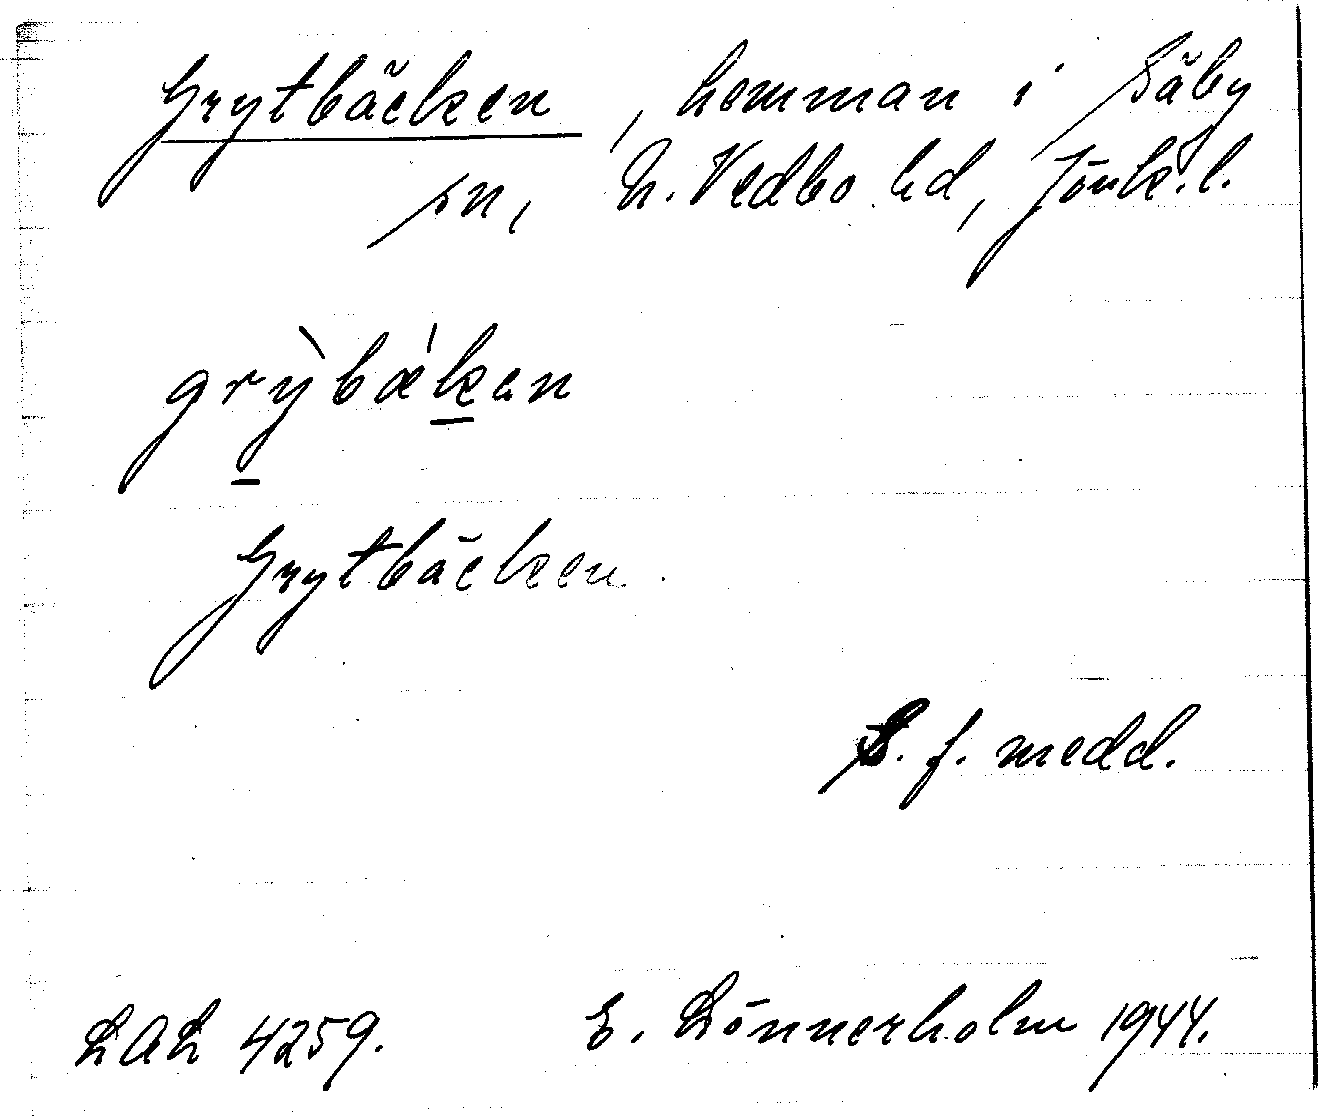 Grytbäcken, hemman i Säby
sn, N. Vedbo hd, Jönk. l.
grỳbǽkən
Grytbäcken.
S. f. medd.
LAL 4259. E. Lönnerholm 1944.